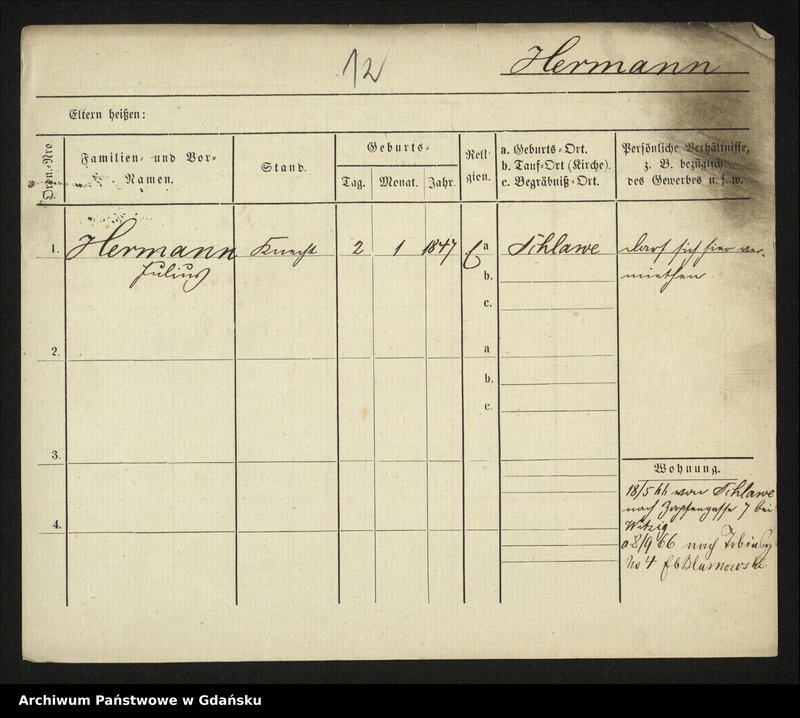 12
Hermann
Eltern heißen:
Ordn.-Nro.
Familien- und Vor-
Namen.
Stand.
Geburts-
Tag. Monat. Jahr.
Reli
gion.
a. Geburts-Ort.
b. Tauf-Ort (Kirche).
c. Begräbniß-Ort.
Persönliche Verhältnisse,
z. B. bezüglich
des Gewerbes u. s. w.
1. Hermann Knecht 2 1 1847 a Schlawe darf sich hier ver-
Julius b. miethen
c.
2. a
b.
c.
3.
Wohnung.
18/5 66 von Schlawe
nach Zapfengasse 7 bei
Witzig
4.
8/9 66 nach
No 4
Archiwum Państwowe w Gdańsku